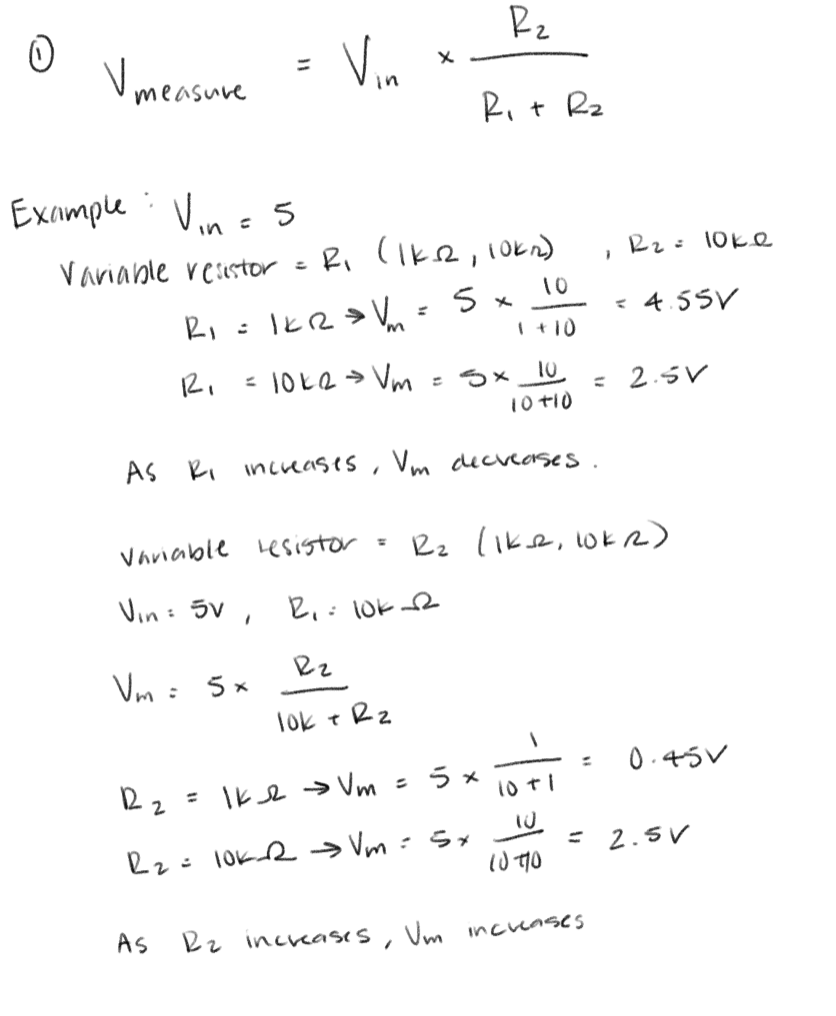 ① Vmeasure = Vin × R2 / (R1 + R2)
Example : Vin = 5
Variable resistor = R1 (1kΩ, 10kΩ) , R2 = 10kΩ
R1 = 1kΩ → Vm = 5 × 10 / (1 + 10) = 4.55V
R1 = 10kΩ → Vm = 5 × 10 / (10 + 10) = 2.5V
As R1 increases, Vm decreases.
Variable resistor = R2 (1kΩ, 10kΩ)
Vin = 5V , R1 = 10kΩ
Vm = 5 × R2 / (10k + R2)
R2 = 1kΩ → Vm = 5 × 1 / (10 + 1) = 0.45V
R2 = 10kΩ → Vm = 5 × 10 / (10 + 10) = 2.5V
As R2 increases, Vm increases